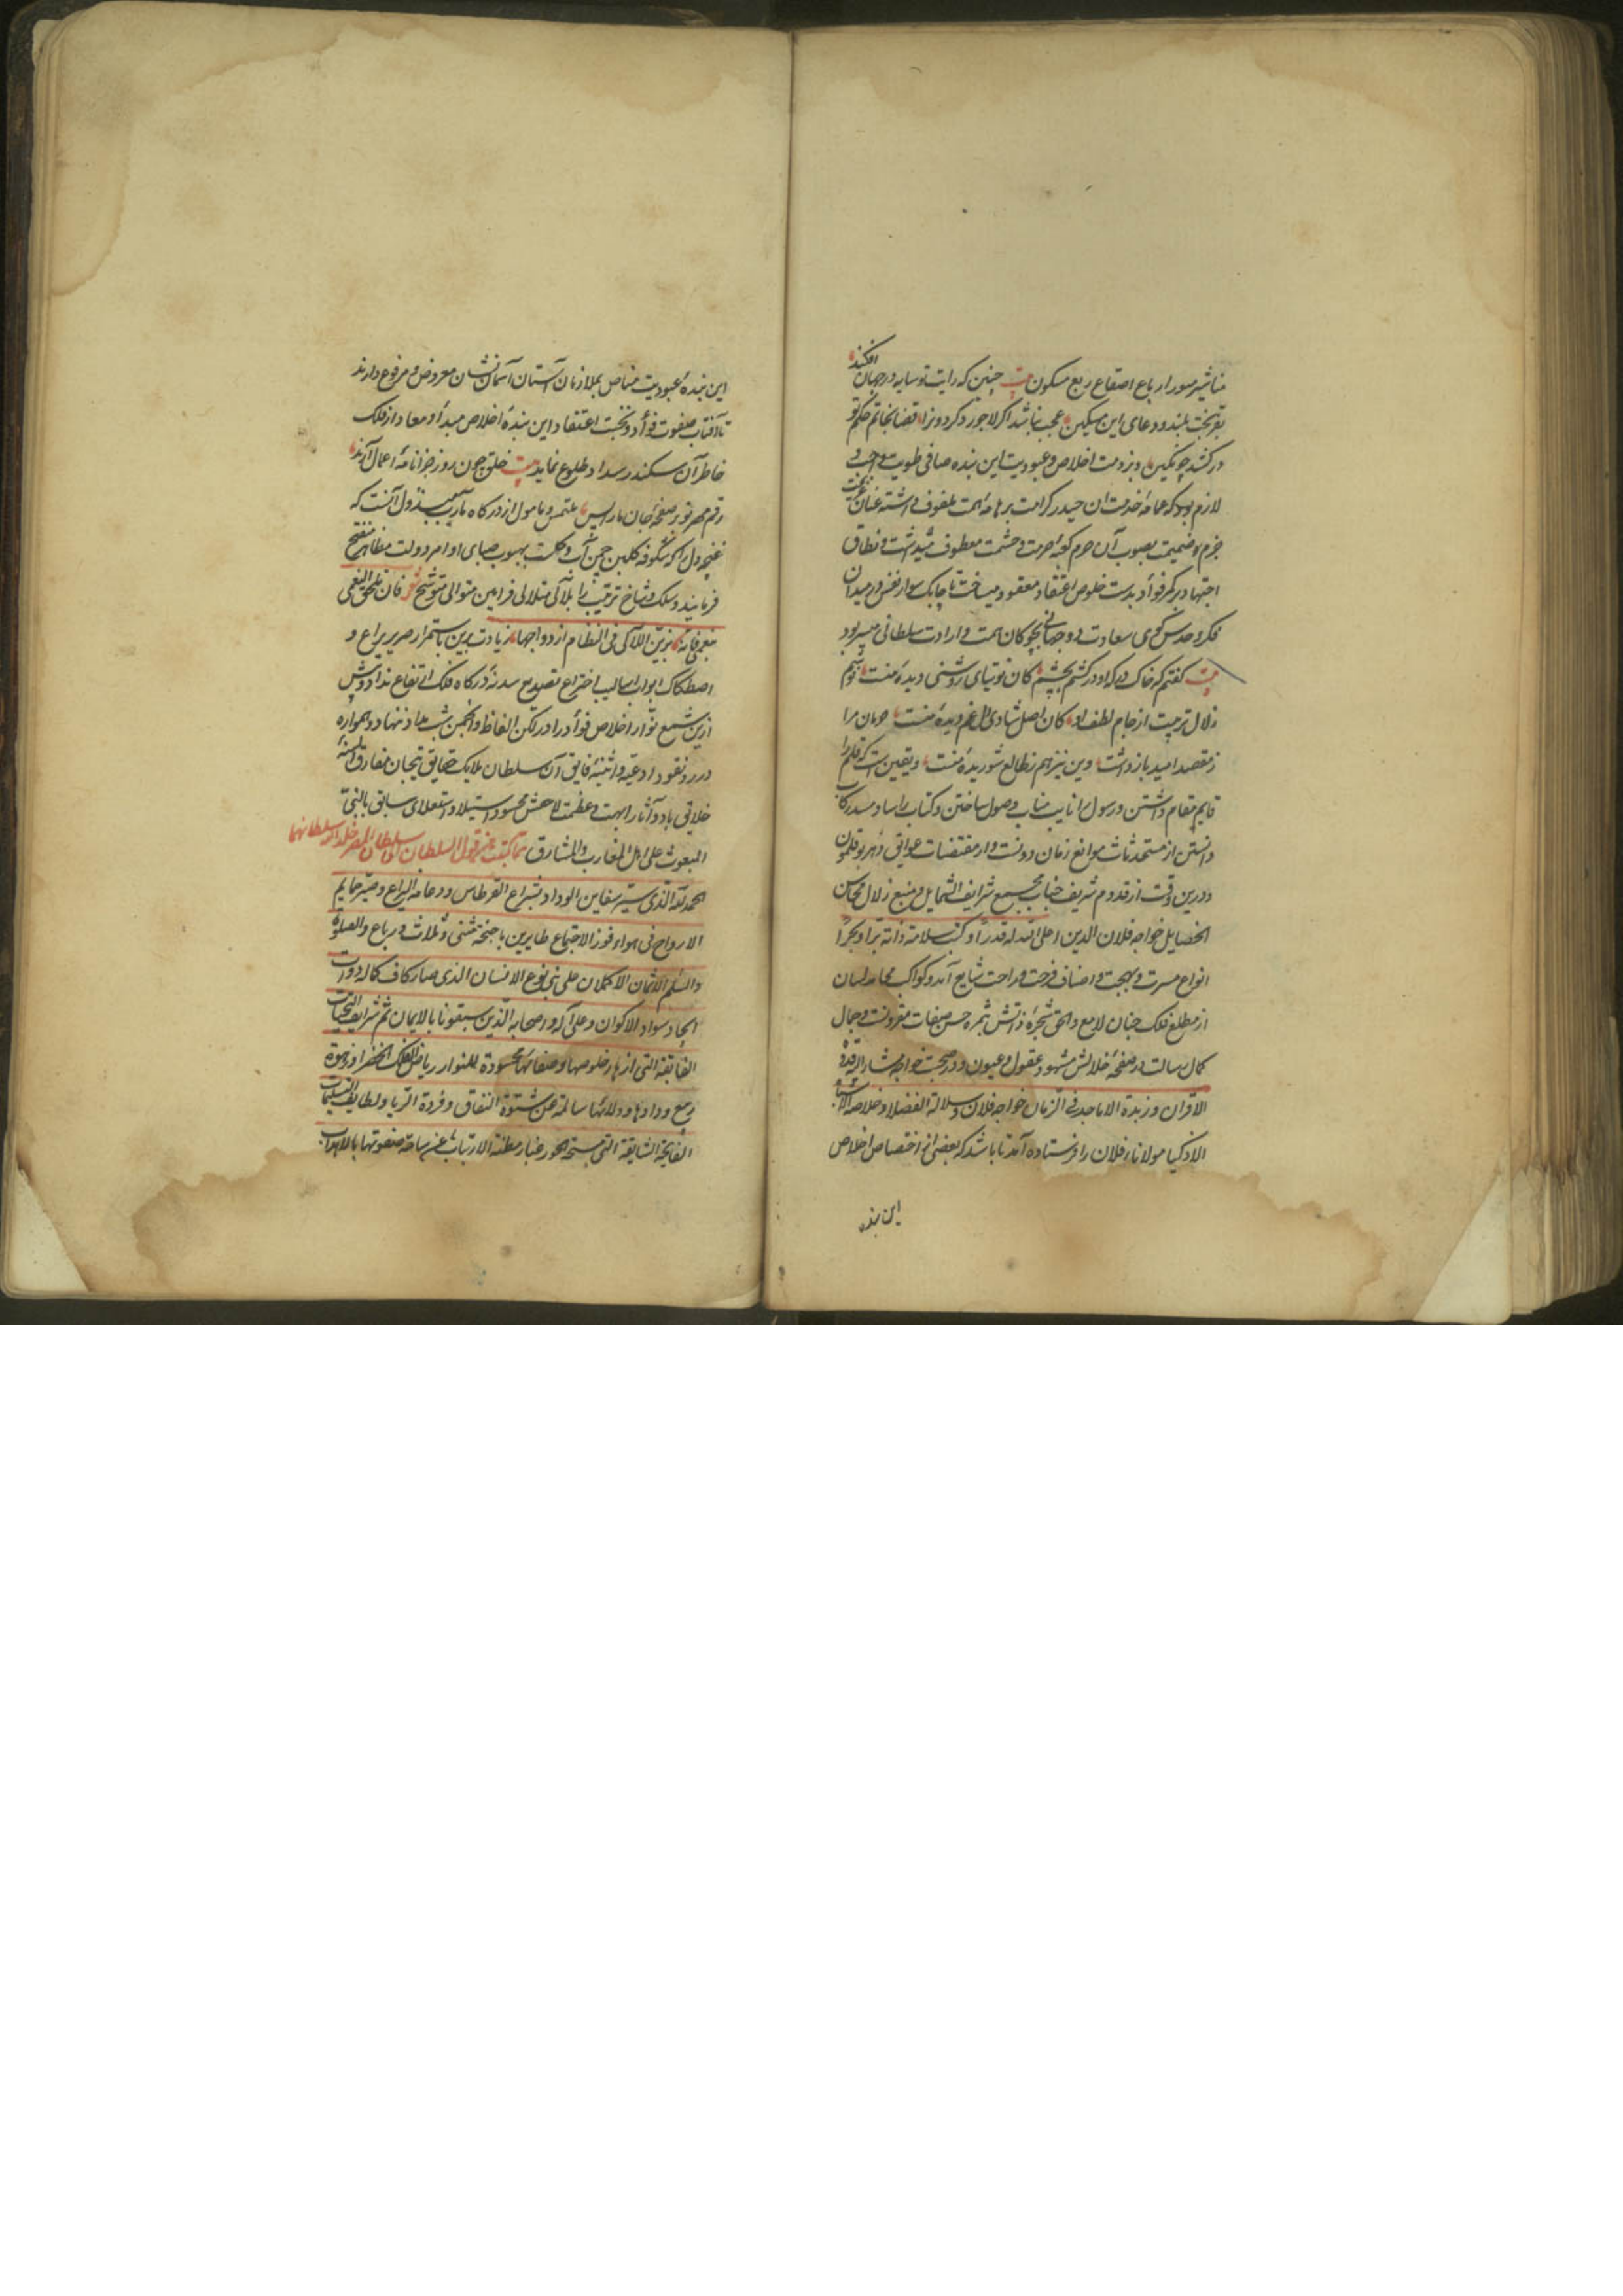 افکند
مناشیر سور ارباع اصقاع ربع مسکون بیت چنین که رایت تو سایه در جهان
بقر بخت بلند و دعای این مسکین عجب نباشد اکر لاجورد کردونرا قضا بخاتم حکم تو
در کشد چو نکین و بر ذمت اخلاص و عبودیت این بنده صافی طویت واجب و
لازم بود که عمامهٔ خدمت ان حیدر کرامت بر هامهٔ همت ملفوف داشته عنان عزیمت
جزم و ضمیمت بصوب آن حرم کعبه حرمت و حشمت معطوف میداشت و نطاق
اجتهاد بر کمر فوأد بدست خلوص اعتقاد معقود میساخت تا چابک سوار نفس در میدان
فکر و حدس کوی سعادت دو جهانی بچوکان همت و ارادت سلطانی میربود
بیت کفتم که خاک درکه او در کشم بچشم کان توتیای روشنی دیده منست نوشم
زلال تربیت از جام لطف او کان اصل شادی دل غم دیده منست حرمان مرا
ز مقصد امید باز داشت وین نیز هم ز طالع شوریده منست و یقین است که قلم را
قایم مقام داشتن و رسول را نایب مناب وصول ساختن و کتاب را ساد مسد رکاب
دانستن از مستحدثات موانع زمان دونست و از مقتضیات عوایق دهر بوقلمون
و درین وقت از قدوم شریف جناب مجمع شرایف الشمایل و منبع زلال محاسن
الخصایل خواجه فلان الدین اعلی الله له قدرا و کتب سلامة ذاته برا و بحرا
انواع مسرت و بهجت و اصناف فرحت و راحت شایع آمد و کواکب محامد لسان
از مطلع فلک جنان لامع و الحق شجرهٔ ذاتش بثمره حسن صفات مقرونست و جمال
کمال رسالت در صفحهٔ خلالش مشهود عقول و عیون و در صحبت خواجه مشار الیه قدوة
الاقران و زبدة الاماجد فی الزمان خواجه فلان و سلالة الفضلا و خلاصة
الاذکیا مولانا فلان را فرستاده آمد تا باشد که بعضی از اختصاص اخلاص
این بنده
این بندهٔ عبودیت مناص بملازمان آستان آسمان نشان معروض و مرفوع دارند
تا آفتاب صفوت فوأد و نخبت اعتقاد این بندهٔ اخلاص مبدأ و معاد از فلک
خاطر آن سکندر سداد طلوع نماید بیت خلق چون روز جزا نامهٔ اعمال آرند
رقم مهر تو بر صفحهٔ جان ما را بس ملتمس و مامول از درکاه مآرب مبذول آنست که
غنچه دل را که شکوفه کلبن چمن آب و کلست بهبوب صبای اوامر دولت مظاهر منفتح
فرمایند و سلک و شاخ ترتیب را بلآلی متلالی فرامین متوالی متوشح شعر فان تلحق النعمی
بنعمی فانه یزین اللآلی فی النظام ازدواجها زیادت برین باستمرار صریر یراع و
اصطکاک ابواب اسالیب اختراع تصدیع سدنهٔ درکاه فلک ارتفاع نداد و پیش
ازین شمع انوار اخلاص فوأد را در لکن الفاظ و انجمن شب مداد ننهاد و همواره
درر و نقود ادعیه و اثنیهٔ فایق آن سلطان ملایک خلایق تیجان مفارق السنهٔ
خلایق باد و آثار ابهت و عظمت لاحقش محسود استیلا و استعلای سابق بالنبی
المبعوث علی اهل المغارب و المشارق مما کتبت عن قول السلطان الی سلطان المصر خلد الله سلطانهما
الحمد لله الذی سیر سفاین الوداد بشراع القرطاس و دعامة الیراع و صیر حمایم
الارواح فی هواء فوز الاجتماع طایرین باجنحة مثنی و ثلاث و رباع و الصلوة
والسلم الاتمان الاکملان علی نبی نوع الانسان الذی صار کاف کماله دوات
ایجاد سواد الاکوان و علی آله و اصحابه الذین سبقونا بالایمان ثم شرایف التحیات
الفایقة التی ازهار خلوصها و صفائها محسودة للنوار ریاض الفلک الخضرا و زهوة
ربیع ودادها و ولائها سالمة عن شتوة النفاق و فردة الریا و لطایف التسلیمات
الفایحة الشایقة التی مسحة الحور غبار مظنة الارتیاب عن ساحة صفوتها بالاهداب